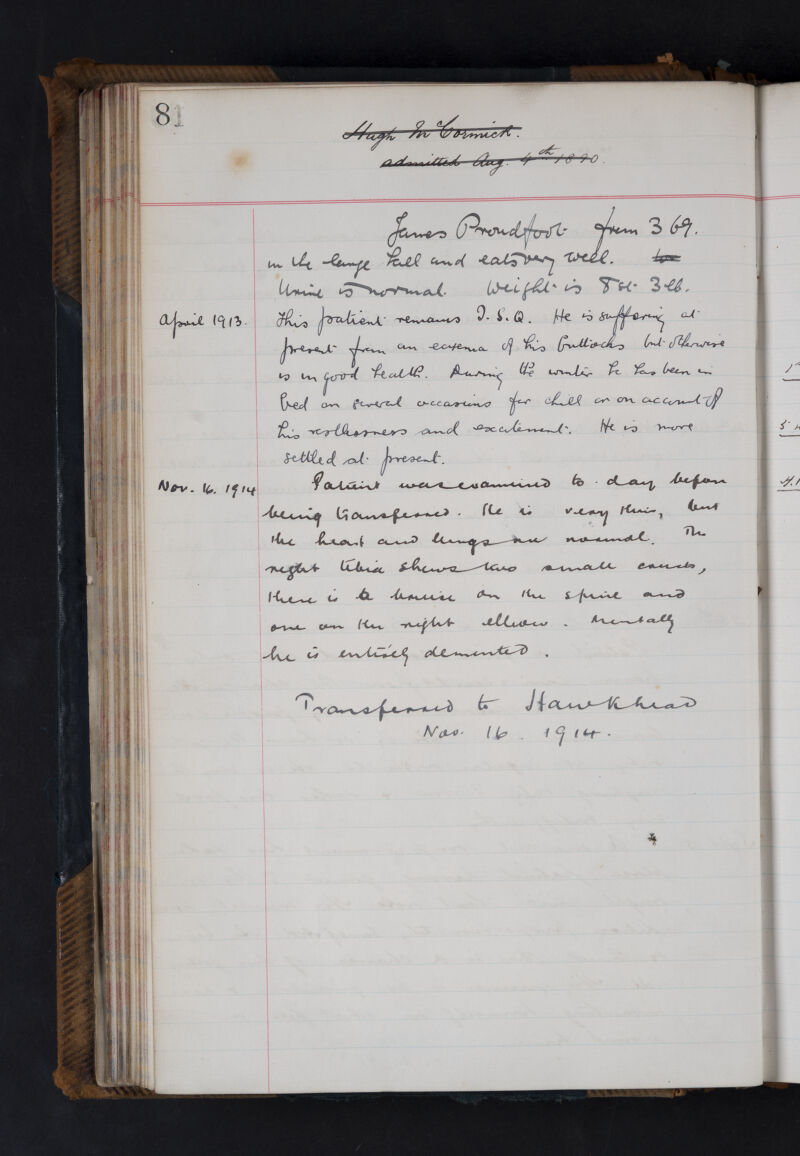 81
Hugh McCormick.
admitted Aug. 4th 1890.
James Proudfoot from 369.
in the large hall and eats very well.
Urine is normal. Weight is 8 st. 3 lb.
April 1913. This patient remains I.S.Q. He is suffering at
present from an eczema of his buttocks but otherwise
is in good health. During the winter he has been in
bed on several occasions for chill or on account of
his restlessness and excitement. He is more
settled at present.
Nov. 16. 1914 Patient was examined to-day before
being transferred. He is very thin, but
the heart and lungs are normal. The
right tibia shews two small
there is a bruise on the spine and
one on the right elbow. Mentally
he is entirely demented.
Transferred to Hawkhead
Nov. 16. 1914.